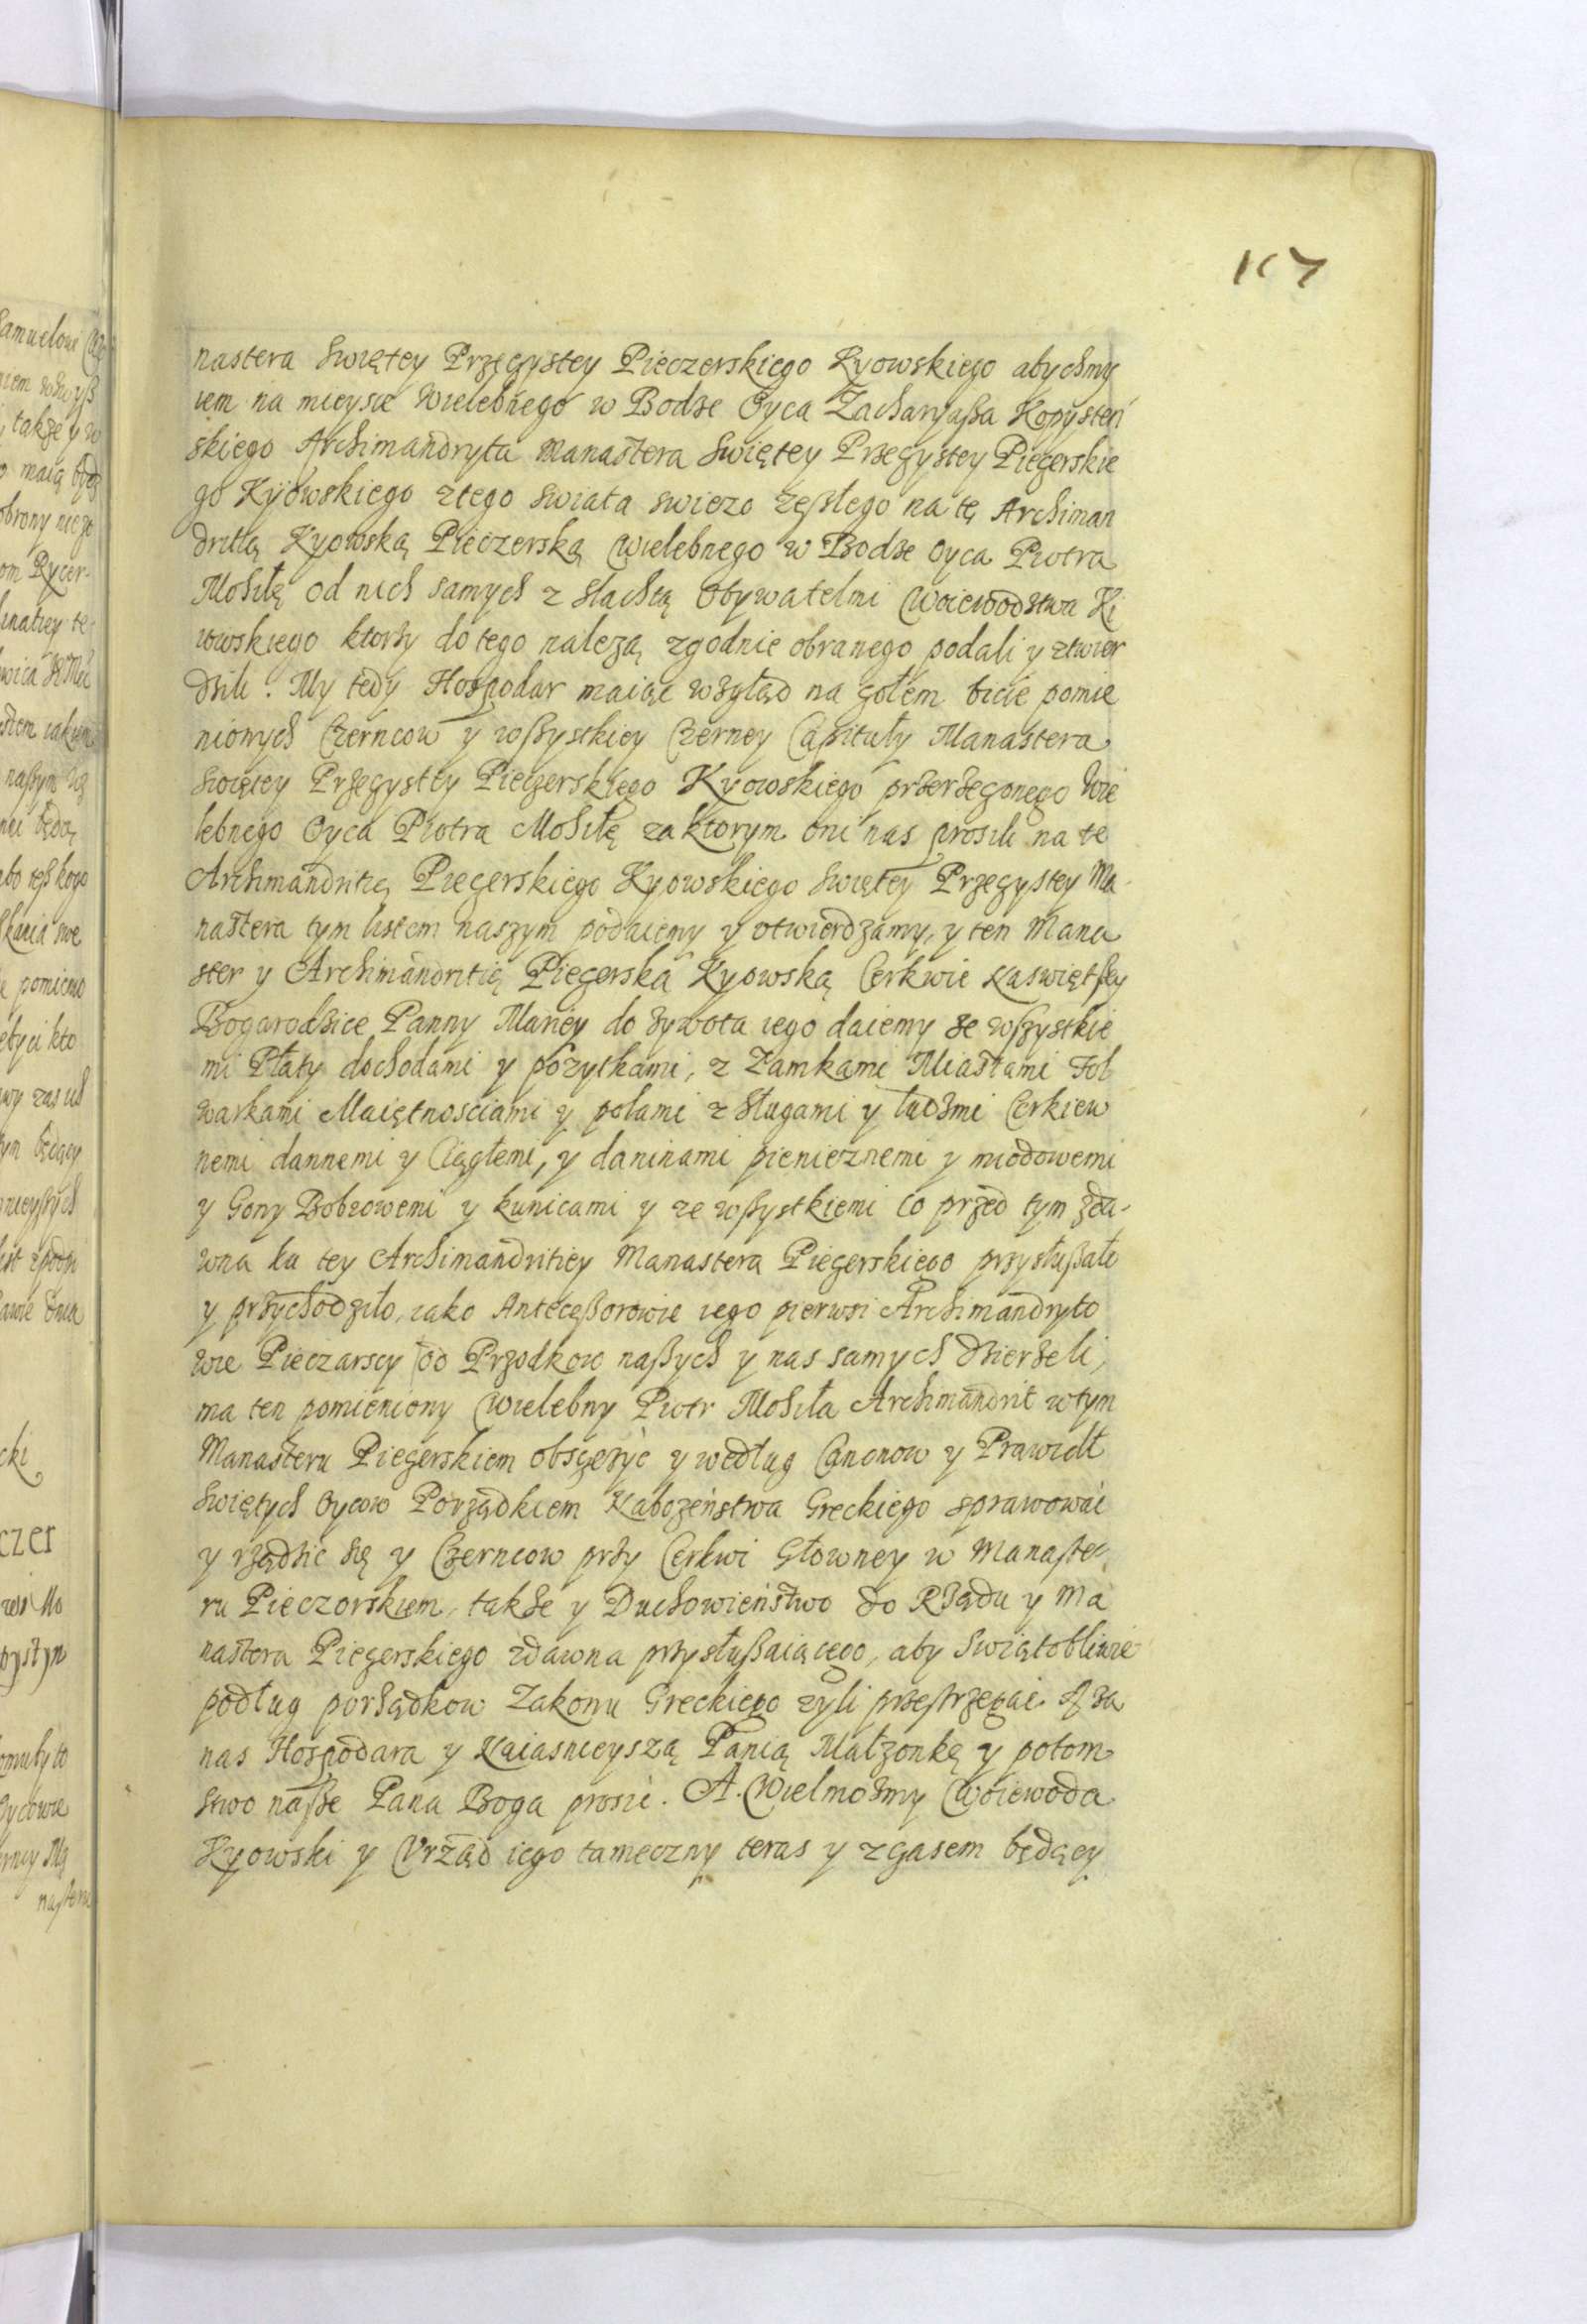 117
nastera Swiętey Przeczystey Pieczerskiego Kyowskiego abychmy
iem na mieysce Wielebnego w Bodze Oyca Zacharyaßa Kopysteń
skiego Archimandryta Manastera Swiętey Przeczystey Pieczerskie
go Kyiowskiego z tego swiata swiezo zeßłego na tę Archiman
dritią Kyowską Pieczerską Wielebnego w Bodze Oyca Piotra
Mohiłę od nich samych z slachtą Obywatelmi Woiewodztwa Ki
iowskiego ktorzy do tego nalezą zgodnie obranego podali y ztwier
dzili. My tedy Hospodar maiąc wzgląd na gołem bicie pomie
nionych Czerncow y wßystkiey Czerney Capituły Manastera
Swiętey Przeczystey Pieczerskiego Kyowskiego przerzeczonego Wie
lebnego Oyca Piotra Mohiłę za ktorym oni nas prosili na te
Archimandritią Pieczerskiego Kyowskiego Swiętey Przeczystey Ma-
nastera tym listem naszym podaiemy y otwierdzamy, y ten Mana
ster y Archimandritię Pieczerską Kyowską Cerkwie Naswiętßey
Bogarodzice Panny Mariey do zywota iego daiemy ze wszystkie
mi Płaty dochodami y pozytkami, z Zamkami Miastami Fol
warkami Maiętnosciami y polami z sługami y ludzmi Cerkiew
nemi dannemi y Ciągłemi, y daninami pienieznemi y miodowemi
y Gony Bobrowemi y kunicami y ze wßystkiemi co przed tym zda-
wna ku tey Archimandritiey Manastera Pieczerskiego przysłußało
y przychodziło, iako Anteceßorowie iego pierwsi Archimandryto
wie Pieczarscy od Przodkow naßych y nas samych dzierzeli,
ma ten pomieniony Wielebny Piotr Mohiła Archimandrit w tym
Manasteru Pieczerskiem obscezyć y według Canonow y Prawidł
Swiętych Oycow Porządkiem Nabozeństwa Greckiego sprawować
y rządzic się y Czerncow przy Cerkwi Głowney w Manaste-
ru Pieczorskiem, takze y Duchowieństwo do Rządu y Ma
nastera Pieczerskiego zdawna przysłußaiącego, aby Swiątobliwie
podług porządkow Zakonu Greckiego zyli przestrzegać. A za
nas Hospodara y Naiasnieyszą Panią Małzonkę y potom
stwo naßze Pana Boga prosić. A. Wielmozny Woiewoda
Kyowski y Vrząd iego tameczny teras y zczasem będący